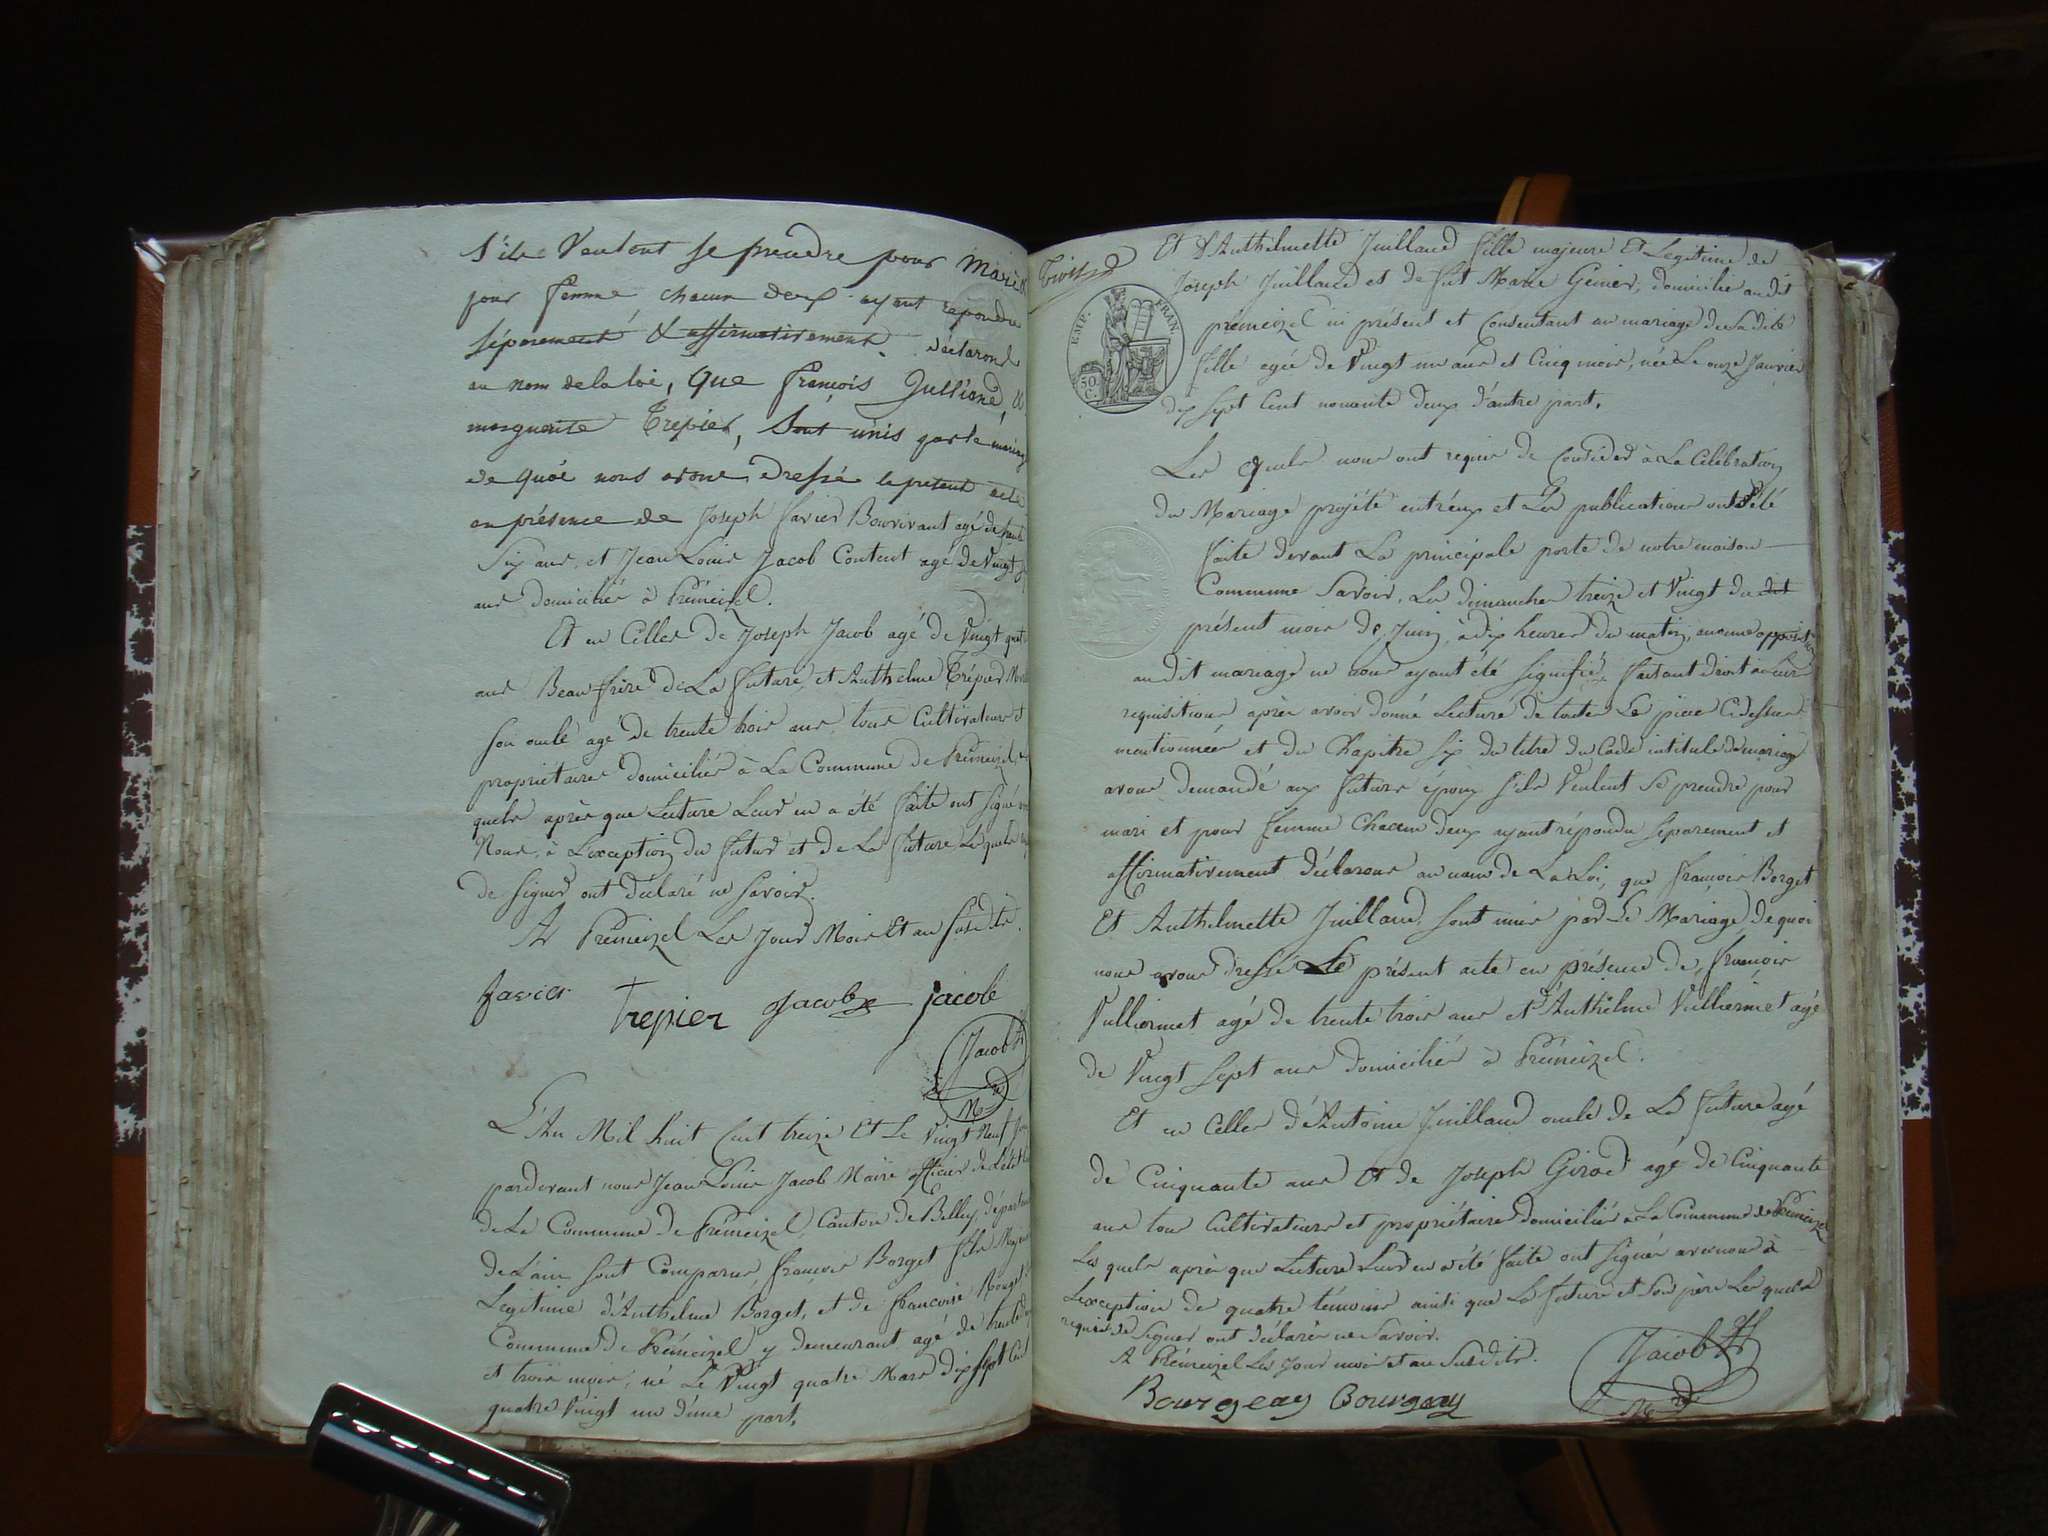 s'ils Veulent se prendre pour Mari &
pour femme chacun deux ayant repondu
séparement & affirmativement. declarons
au nom de la loi, Que françois Julliand, &
marguerite Trepier, Sont unis par le mariage
de quoi nous avons dressé le present acte
en présence de Joseph Xavier Bonvivant agé de trente
Six ans, et Jean Louis Jacob Content agé de Vingt
ans domiciliés à Prémeizel.
Et en Celles de Joseph Jacob agé de Vingt quatre
ans Beau frère de La future, et Anthelme Trépier
son oncle agé de trente trois ans, tous Cultivateurs et
propriétaires domiciliés à La Commune de Prémeizel,
quels après que Lecture Leur en a été faite ont Signé
Nous, à L'exception du futur et de La future, Les quels
de Signer ont déclaré ne Savoir.
A Prémeizel Les Jour Mois Et an susdits.
Xavier Trepier Jacob Jacob
Jacob
M
L'An Mil huit Cent treize Et Le Vingt Neuf Juin
pardevant nous Jean Louis Jacob Maire officier de L'état
de La Commune de Prémeizel, Canton de Belley, département
de L'ain sont Comparus françois Borget fils Majeur
Legitime d'Anthelme Borget, et de francoise
Commune de Prémeizel y demeurant agé de trente
et trois mois, né Le Vingt quatre Mars Dix Sept Cent
quatre Vingt un d'une part,
Et d'Anthelmette Juilland fille majeure Et Legitime de
Joseph Juilland et de fut Marie Genier, domicilié audit
prémeizel ici présent et Consentant au mariage de Sa dite
fille agée de Vingt un ans et Cinq mois, née Le onze Janvier
dix Sept Cent nonante deux d'autre part.
EMP. FRAN.
50. C.
Les quels nous ont requis de Procéder à La Célébration
du Mariage projété entr'eux et Les publications ont été
faite devant La principale porte de notre maison
Commune Savoir, Les dimanches treize et Vingt du dit
présent mois de Juin, à dix heures du matin, aucune opposition
audit mariage ne nous ayant été Signifié, faisant droit à Leur
requisitions après avoir donné Lecture de toute Les pièces Cidessus
mentionnées et du Chapitre six du titre du Code intitulé Du mariage
avons demandé aux futurs époux s'ils Veulent Se prendre pour
mari et pour femme Chacun deux ayant répondu séparement et
affirmativement Déclarons au nom de La Loi, que françois Borget
Et Anthelmette Juilland, Sont unis par Le Mariage, de quoi
nous avons dressé Le présent acte en présence de, françois
Vulliermet agé de trente trois ans et d'Anthelme Vulliermet agé
de Vingt Sept ans domicilié à Prémeizel.
Et en Celles d'Antoine Juilland oncle de La future agé
de Cinquante ans Et de Joseph Girod agé de Cinquante
ans tous Cultivateurs et propriétaire domicilié à La Commune de Prémeizel
Les quels après que Lecture Leur en a été faite ont Signés avec nous à
L'exception de quatre témoins ainsi que La future et Son père Les quels
requis de Signer ont déclarés ne Savoir.
A Prémeizel Les Jour mois et an Susdits.
Bourgeay Bourgeay Jacob
M